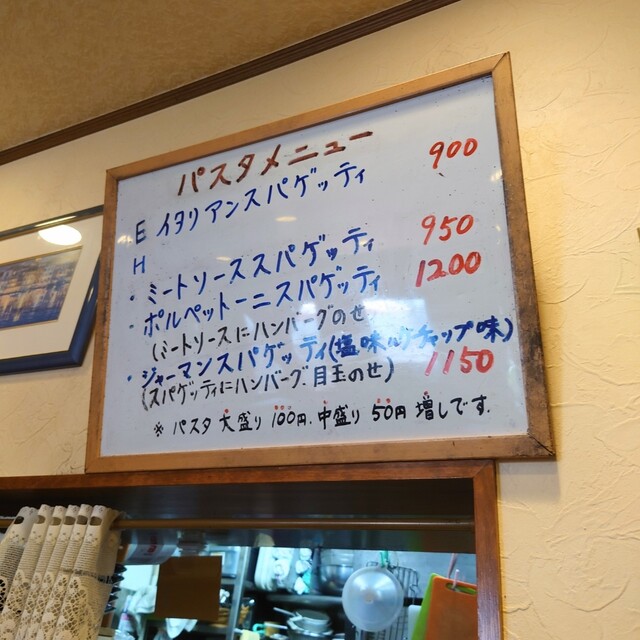 パスタメニュー
E イタリアンスパゲッティ 900
H
・ミートソーススパゲッティ 950
・ポルペットーニスパゲッティ 1200
(ミートソースにハンバーグのせ)
・ジャーマンスパゲッティ(塩味orケチャップ味)
(スパゲッティにハンバーグ、目玉のせ) 1150
※ パスタ 大盛り 100円、中盛り 50円 増しです。